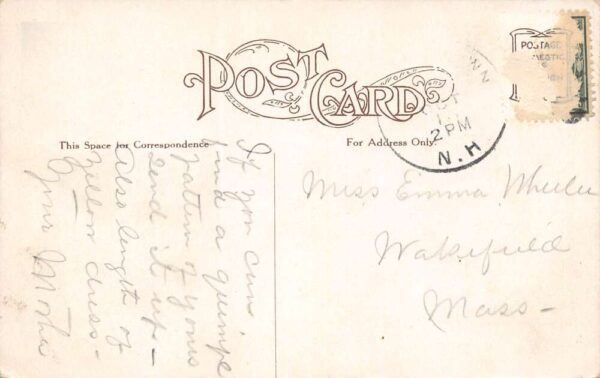 POST CARD
This Space for Correspondence
For Address Only.
POSTAGE
OCT
2 PM
N.H
If you can
find a guimpe
pattern of yours
send it up –
Also length of
yellow dress –
Your Mother
Miss Emma Wheeler
Wakefield
Mass –